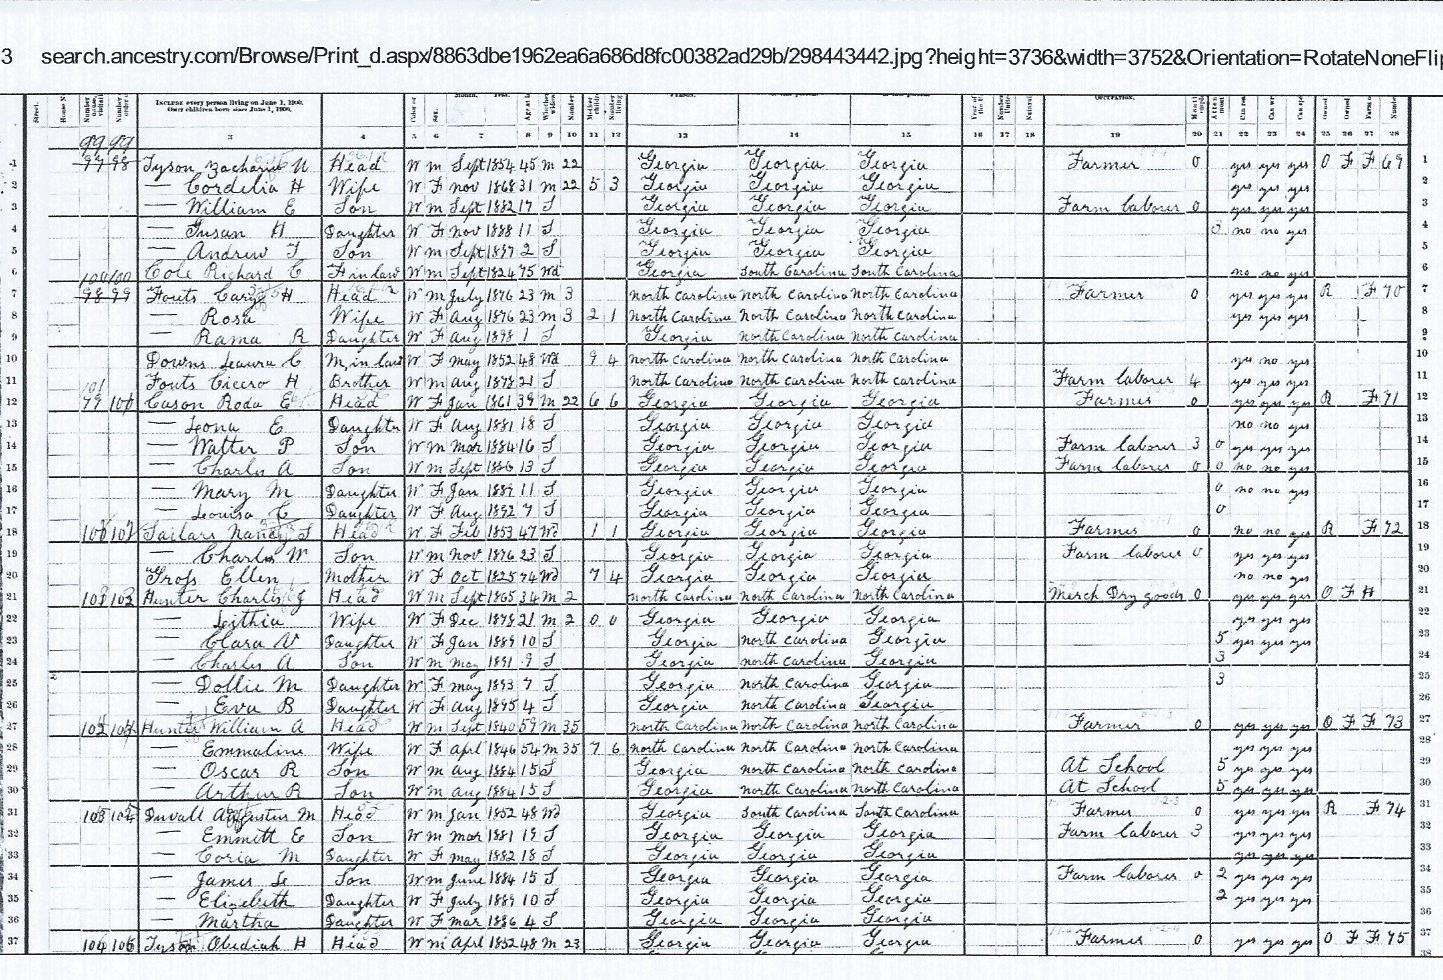 3 search.ancestry.com/Browse/Print_d.aspx/8863dbe1962ea6a686d8fc00382ad29b/298443442.jpg?height=3736&width=3752&Orientation=RotateNoneFli
INCLUDE every person living on June 1, 1900.
OMIT children born since June 1, 1900.
OCCUPATION.
3 4 5 6 7 8 9 10 11 12 13 14 15 16 17 18 19 20 21 22 23 24 25 26 27 28
99 99
1 97 98 Tyson Head W m Sept 1854 45 m 22 Georgia Georgia Georgia Farmer 0 yes yes yes O F F 69 1
2 — Cordelia H Wife W F nov 1868 31 m 22 5 3 Georgia Georgia Georgia yes yes yes 2
3 — William E Son W m Sept 1882 17 S Georgia Georgia Georgia Farm laborer 0 yes yes yes 3
4 — Susan H Daughter W F nov 1888 11 S Georgia Georgia Georgia 3 no no yes 4
5 — Andrew J Son W m Sept 1897 2 S Georgia Georgia Georgia 5
6 100 100 Cole Richard C F in law W m Sept 1824 75 Wd Georgia South Carolina South Carolina no no yes 6
7 98 99 Fouts H Head W m July 1876 23 m 3 north Carolina north Carolina north Carolina Farmer 0 yes yes yes R F 70 7
8 — Rosa Wife W F Aug 1876 23 m 3 2 1 north Carolina north Carolina north Carolina yes yes yes 8
9 — Rama R Daughter W F Aug 1898 1 S Georgia north Carolina north Carolina 9
10 Downs Laura C M, in law W F may 1852 48 Wd 9 4 north Carolina north Carolina north Carolina yes no yes 10
11 101 Fouts Cicero H Brother W m aug 1878 21 S north Carolina north Carolina north Carolina Farm laborer 4 yes yes yes 11
12 99 100 Cason Roda E Head W F Jan 1861 39 m 22 6 6 Georgia Georgia Georgia Farmer 0 yes yes yes R F 71 12
13 — Leona E Daughter W F Aug 1881 18 S Georgia Georgia Georgia no no yes 13
14 — Walter P Son W m Mar 1884 16 S Georgia Georgia Georgia Farm laborer 3 0 yes yes yes 14
15 — Charles A Son W m Sept 1886 13 S Georgia Georgia Georgia Farm laborer 0 0 no no yes 15
16 — Mary M Daughter W F Jan 1889 11 S Georgia Georgia Georgia 0 no no yes 16
17 — Louisa C Daughter W F Aug 1892 7 S Georgia Georgia Georgia 0 17
18 102 Sailars Nancy S Head W F Feb 1853 47 Wd 1 1 Georgia Georgia Georgia Farmer 0 no no yes R F 72 18
19 — Charles W Son W m nov 1876 23 S Georgia Georgia Georgia Farm laborer 0 yes yes yes 19
20 Ellen Mother W F Oct 1825 74 Wd 7 4 Georgia Georgia Georgia no no yes 20
21 103 Hunter Charles J Head W m Sept 1865 34 m 2 north Carolina north Carolina north Carolina Merch Dry goods 0 yes yes yes O F H 21
22 — Wife W F Dec 1878 21 m 2 0 0 Georgia Georgia Georgia yes yes yes 22
23 — Clara V Daughter W F Jan 1889 10 S Georgia north Carolina Georgia 5 yes yes yes 23
24 — Charles A Son W m may 1891 9 S Georgia north Carolina Georgia 3 24
25 — Dollie M Daughter W F may 1893 7 S Georgia north Carolina Georgia 3 25
26 — Eva B Daughter W F Aug 1895 4 S Georgia north Carolina Georgia 26
27 102 104 Hunter William A Head W m Sept 1840 59 m 35 north Carolina north Carolina north Carolina Farmer 0 yes yes yes O F F 73 27
28 — Emmaline Wife W F Aprl 1846 54 m 35 7 6 north Carolina north Carolina north Carolina yes yes yes 28
29 — Oscar R Son W m aug 1884 15 S Georgia north Carolina north Carolina At School 5 yes yes yes 29
30 — Arthur R Son W m aug 1884 15 S Georgia north Carolina north Carolina At School 5 yes yes yes 30
31 103 Duvall Augustus M Head W m Jan 1852 48 Wd Georgia South Carolina South Carolina Farmer 0 yes yes yes R F 74 31
32 — Emmitt E Son W m mar 1881 19 S Georgia Georgia Georgia Farm laborer 3 yes yes yes 32
33 — Coria M Daughter W F may 1882 18 S Georgia Georgia Georgia yes yes yes 33
34 — James L Son W m June 1884 15 S Georgia Georgia Georgia Farm laborer 0 2 yes yes yes 34
35 — Elizebeth Daughter W F July 1889 10 S Georgia Georgia Georgia 2 yes yes yes 35
36 — Martha Daughter W F mar 1896 4 S Georgia Georgia Georgia 36
37 104 106 Tyson Obediah H Head W m Aprl 1852 48 m 23 Georgia Georgia Georgia Farmer 0 yes yes yes O F F 75 37